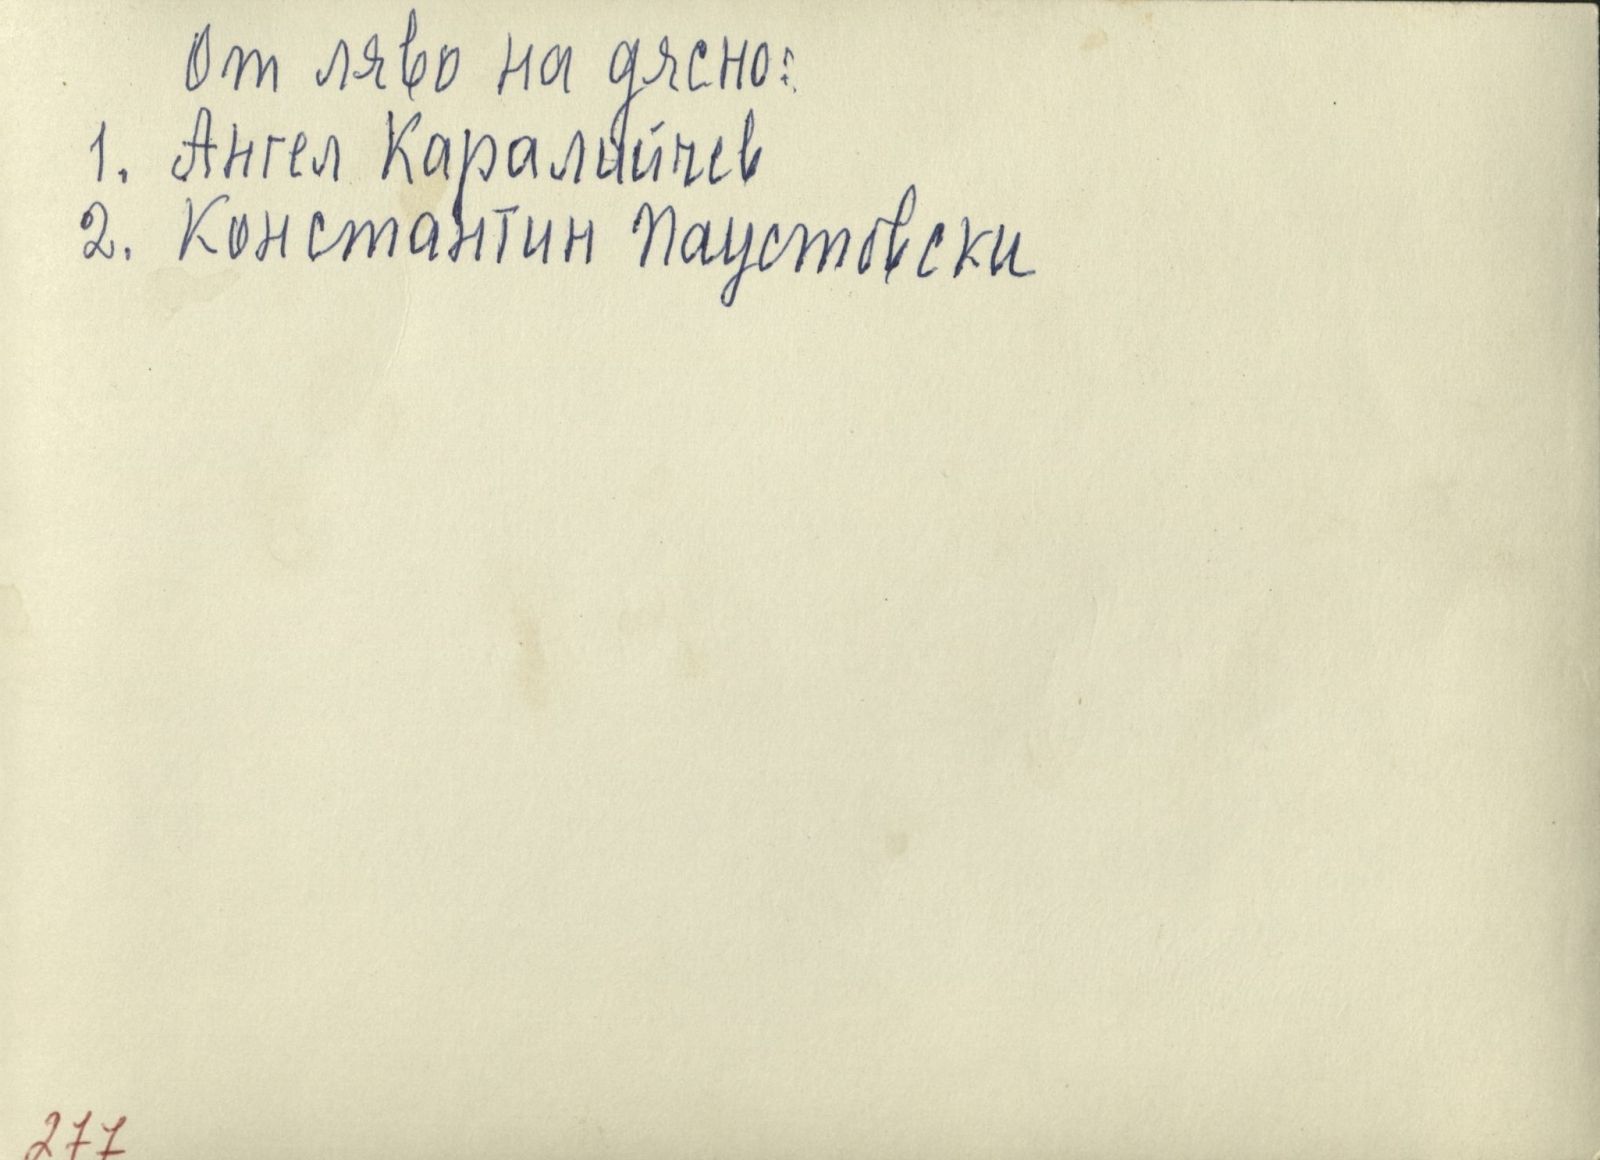 От ляво на дясно:
1. Ангел Каралийчев
2. Константин Паустовски
277